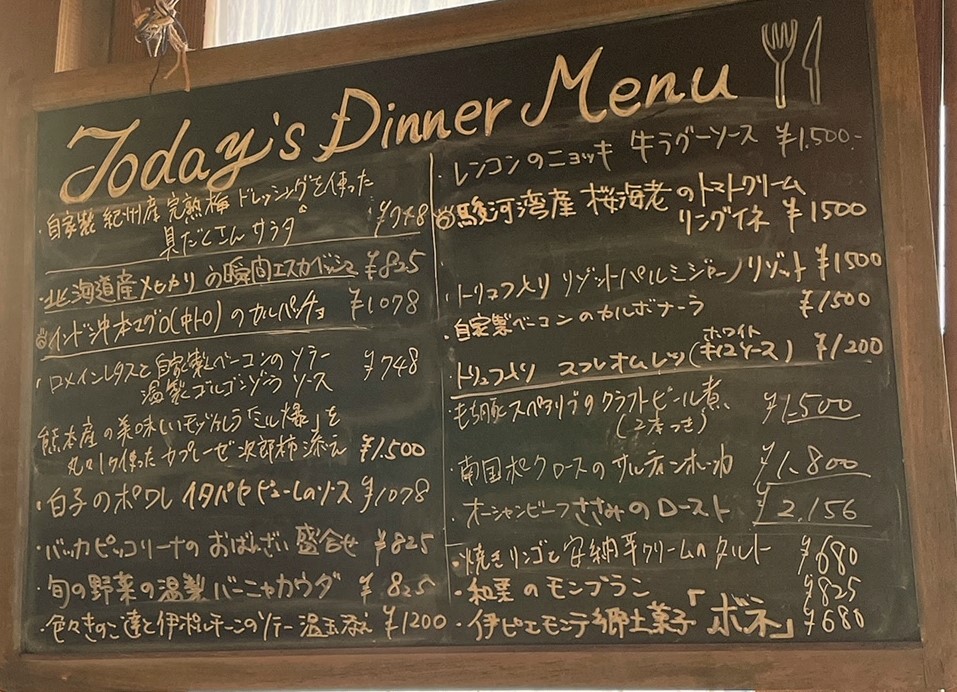 Today's Dinner Menu
・自家製 紀州産 完熟梅 ドレッシングを使った
具だくさん サラダ ¥748
・北海道産メヒカリの瞬間エスカベッシュ ¥825
インド沖本マグロ(中トロ)のカルパッチョ ¥1078
・ロメインレタスと自家製ベーコンのソテー
温製ゴルゴンゾーラソース ¥748
熊本産の美味しいモッツァレラ「ミル様」を
丸々1ケ使ったカプレーゼ 次郎柿添え ¥1.500
・白子のポワレ ¥1078
・バッカピッコリーナの おばんざい 盛合せ ¥825
・旬の野菜の温製 バーニャカウダ ¥825
・色々きのこ達と のソテー 温玉添え ¥1200
・レンコンのニョッキ 牛ラグーソース ¥1.500-
駿河湾産 桜海老のトマトクリーム
リングイネ ¥1500
・トリュフ入り リゾットパルミジャーノリゾット ¥1500
・自家製ベーコンのカルボナーラ ¥1500
・トリュフ入り スフレオムレツ(ホワイト ソース) ¥1200
・もち豚スペアリブのクラフトビール煮
(2本つき) ¥1,500
・南国 ロースの ¥1.800
・オーシャンビーフささみのロースト ¥2,156
・焼きリンゴと安納芋クリームのタルト ¥680
・和栗のモンブラン ¥825
・伊ピエモンテ郷土菓子「ボネ」 ¥680